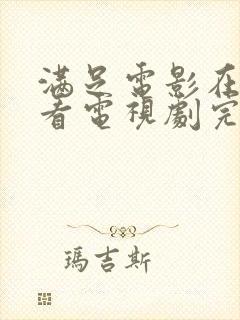 滿足電影在
看電視劇完
瑪吉斯